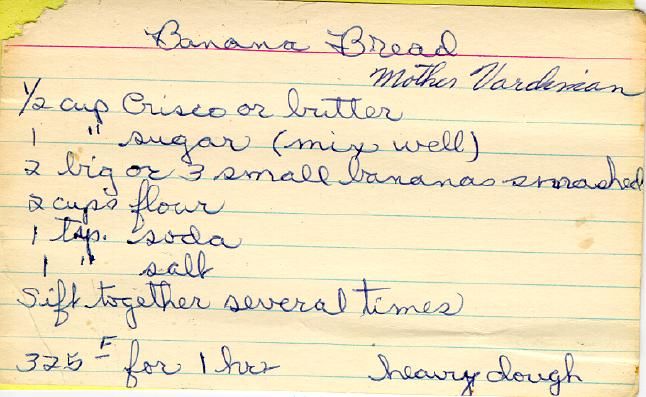 Banana Bread
Mother Vardiman
1/2 cup Crisco or butter
1 " sugar (mix well)
2 big or 3 small bananas smashed
2 cups flour
1 tsp. soda
1 " salt
Sift together several times
325 F for 1 hr heavy dough